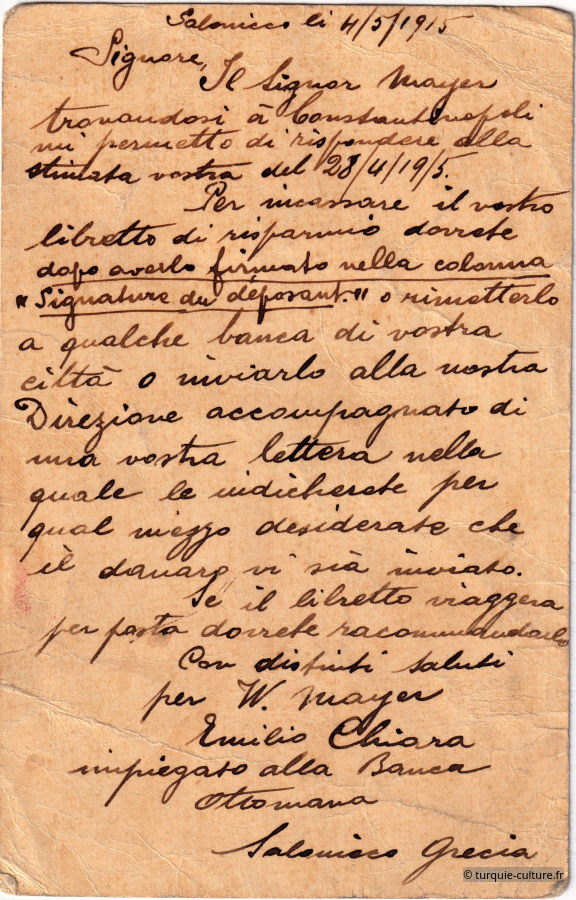 Salonicco li 4/5/1915
Signore,
Il Signor Mayer
trovandosi à Constantinopoli
mi permetto di rispondere alla
stimata vostra del 28/4/1915.
Per incassare il vostro
libretto di risparmio dovrete
dopo averlo firmato nella colonna
"Signature du déposant." o rimetterlo
a qualche banca di vostra
città o inviarlo alla nostra
Direzione accompagnato di
una vostra lettera nella
quale le indicherete per
qual mezzo desiderate che
il danaro vi sià inviato.
Se il libretto viaggera
per posta dovrete racommandarlo
Con distinti saluti
per W. Mayer
Emilio Chiara
impiegato alla Banca
Ottomana
Salonicco Grecia
© turquie-culture.fr